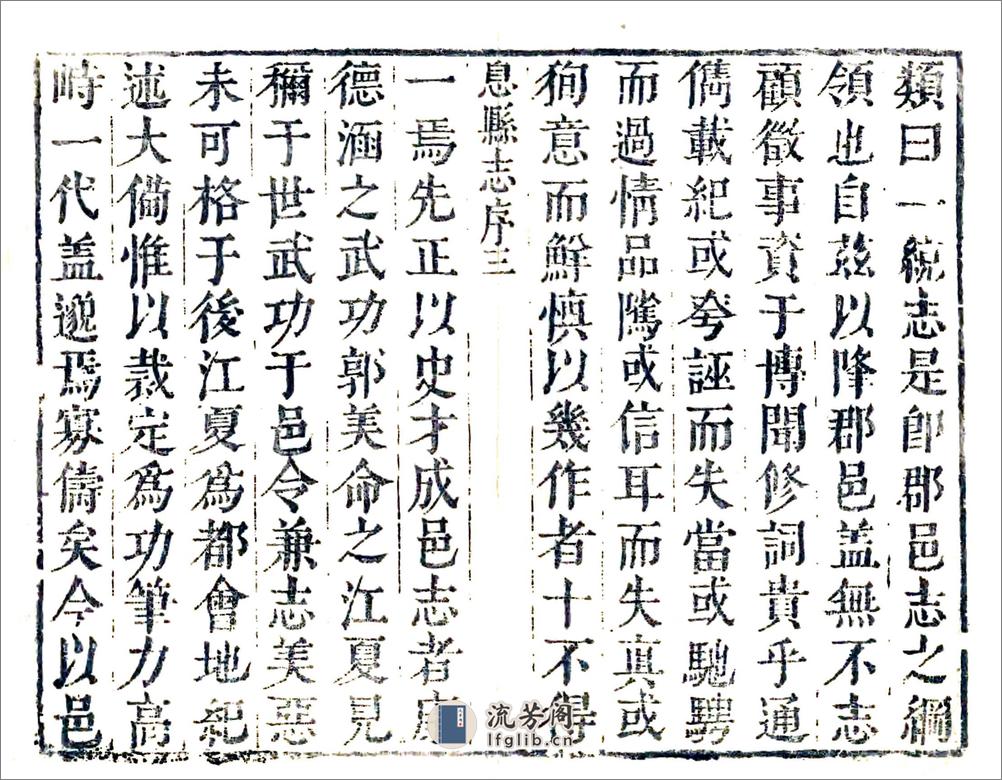 類曰一統志是卽郡邑志之綱
領也自茲以降郡邑盖無不志
顧徵事資于博聞修詞貴乎通
儁載紀或夸誣而失當或馳騁
而過情品隲或信耳而失真或
狥意而鮮慎以幾作者十不得
息縣志序三
一焉先正以史才成邑志者
德涵之武功郭美命之江夏見
稱于世武功于邑令兼志美惡
未可格于後江夏為都會地紀
述大備惟以裁定為功筆力高
峙一代盖邈焉寡儔矣今以邑
流芳阁
lfglib.cn